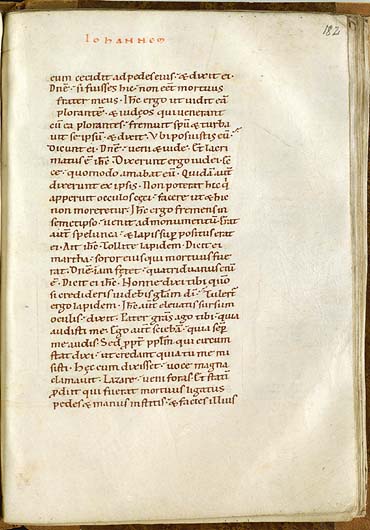 Iohannem
182
eum cecidit ad pedes eius · & dixit ei ·
Dn̄e · si fuisses hic · non eēt mortuus
frater meus · Ih̄c ergo ut uidit eā
plorantē · & iudęos qui uenerant
cū ea plorantes · fremuit sp̄u & turba
uit se ipsū · & dixit · Vbi posuistis eū ·
Dicunt ei · Dn̄e · ueni & uide · Et lacri
matus ē ih̄c · Dixerunt ergo iudei · ec
ce · quomodo amabat eū · Quidā aut̄
dixerunt ex ipsis · Non poterat hic q̇
apperuit oculos ceci · facere ut & hic
non moreretur · Ih̄c ergo fremens in
semetipso · uenit ad monumentū · Erat
aut̄ spelunca · & lapis sup̄positus erat
ei · Ait ih̄c · Tollite lapidem · Dicit ei
martha · soror eius qui mortuus fue
rat · Dn̄e · iam fętet · quatriduanus enī
ē · Dicit ei ih̄c · Nonne dixi tibi quō
si credideris uidebis glām dī · Tulert̄
ergo lapidem · Ih̄c aut̄ eleuatis sursum
oculis · dixit · Pater grās ago tibi · quia
audisti me · Ego aut̄ sciebā · quia sep̄
me audis · Sed pp̄t pp̄lm qui circum
stat dixi · ut credant quia tu me mi
sisti · Hęc cum dixisset · uoce magna
clamauit · Lazare · ueni foras · Et statī
p̄diit qui fuerat mortuus ligatus
pedes & manus institis · & facies illius